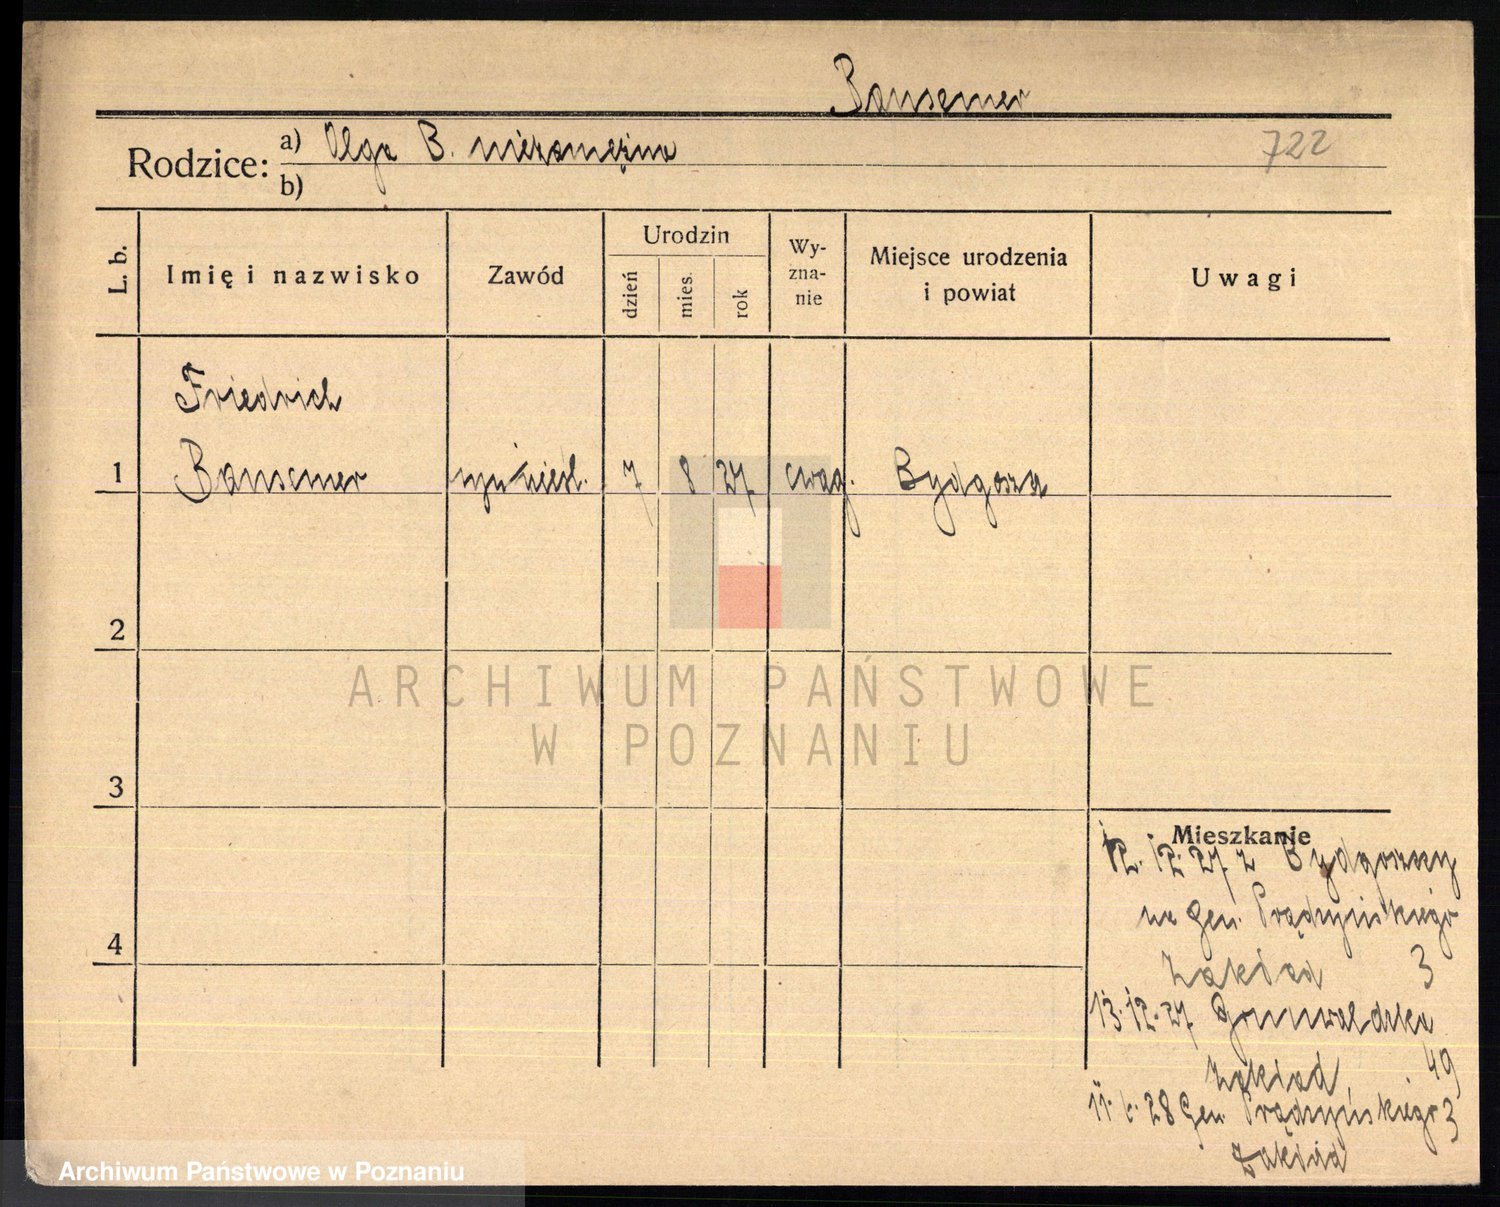 Bansemer
Rodzice:
a) Olga B. niezamężna
722
b)
L. b.
Imię i nazwisko
Zawód
Urodzin
dzień
mies.
rok
Wy-
zna-
nie
Miejsce urodzenia
i powiat
Uwagi
Friedrich
1 Bansemer syn nieśl. 7 8 27 ewag. Bydgoszcz
2
3
4
Mieszkanie
12.12.27 z Bydgoszczy
na Gen. Prądzyńskiego
Zakład 3
13.12.27 Grunwaldzka
Zakład 49
28 Gen. Prądzyńskiego 3
Zakład
ARCHIWUM PAŃSTWOWE
W POZNANIU
Archiwum Państwowe w Poznaniu